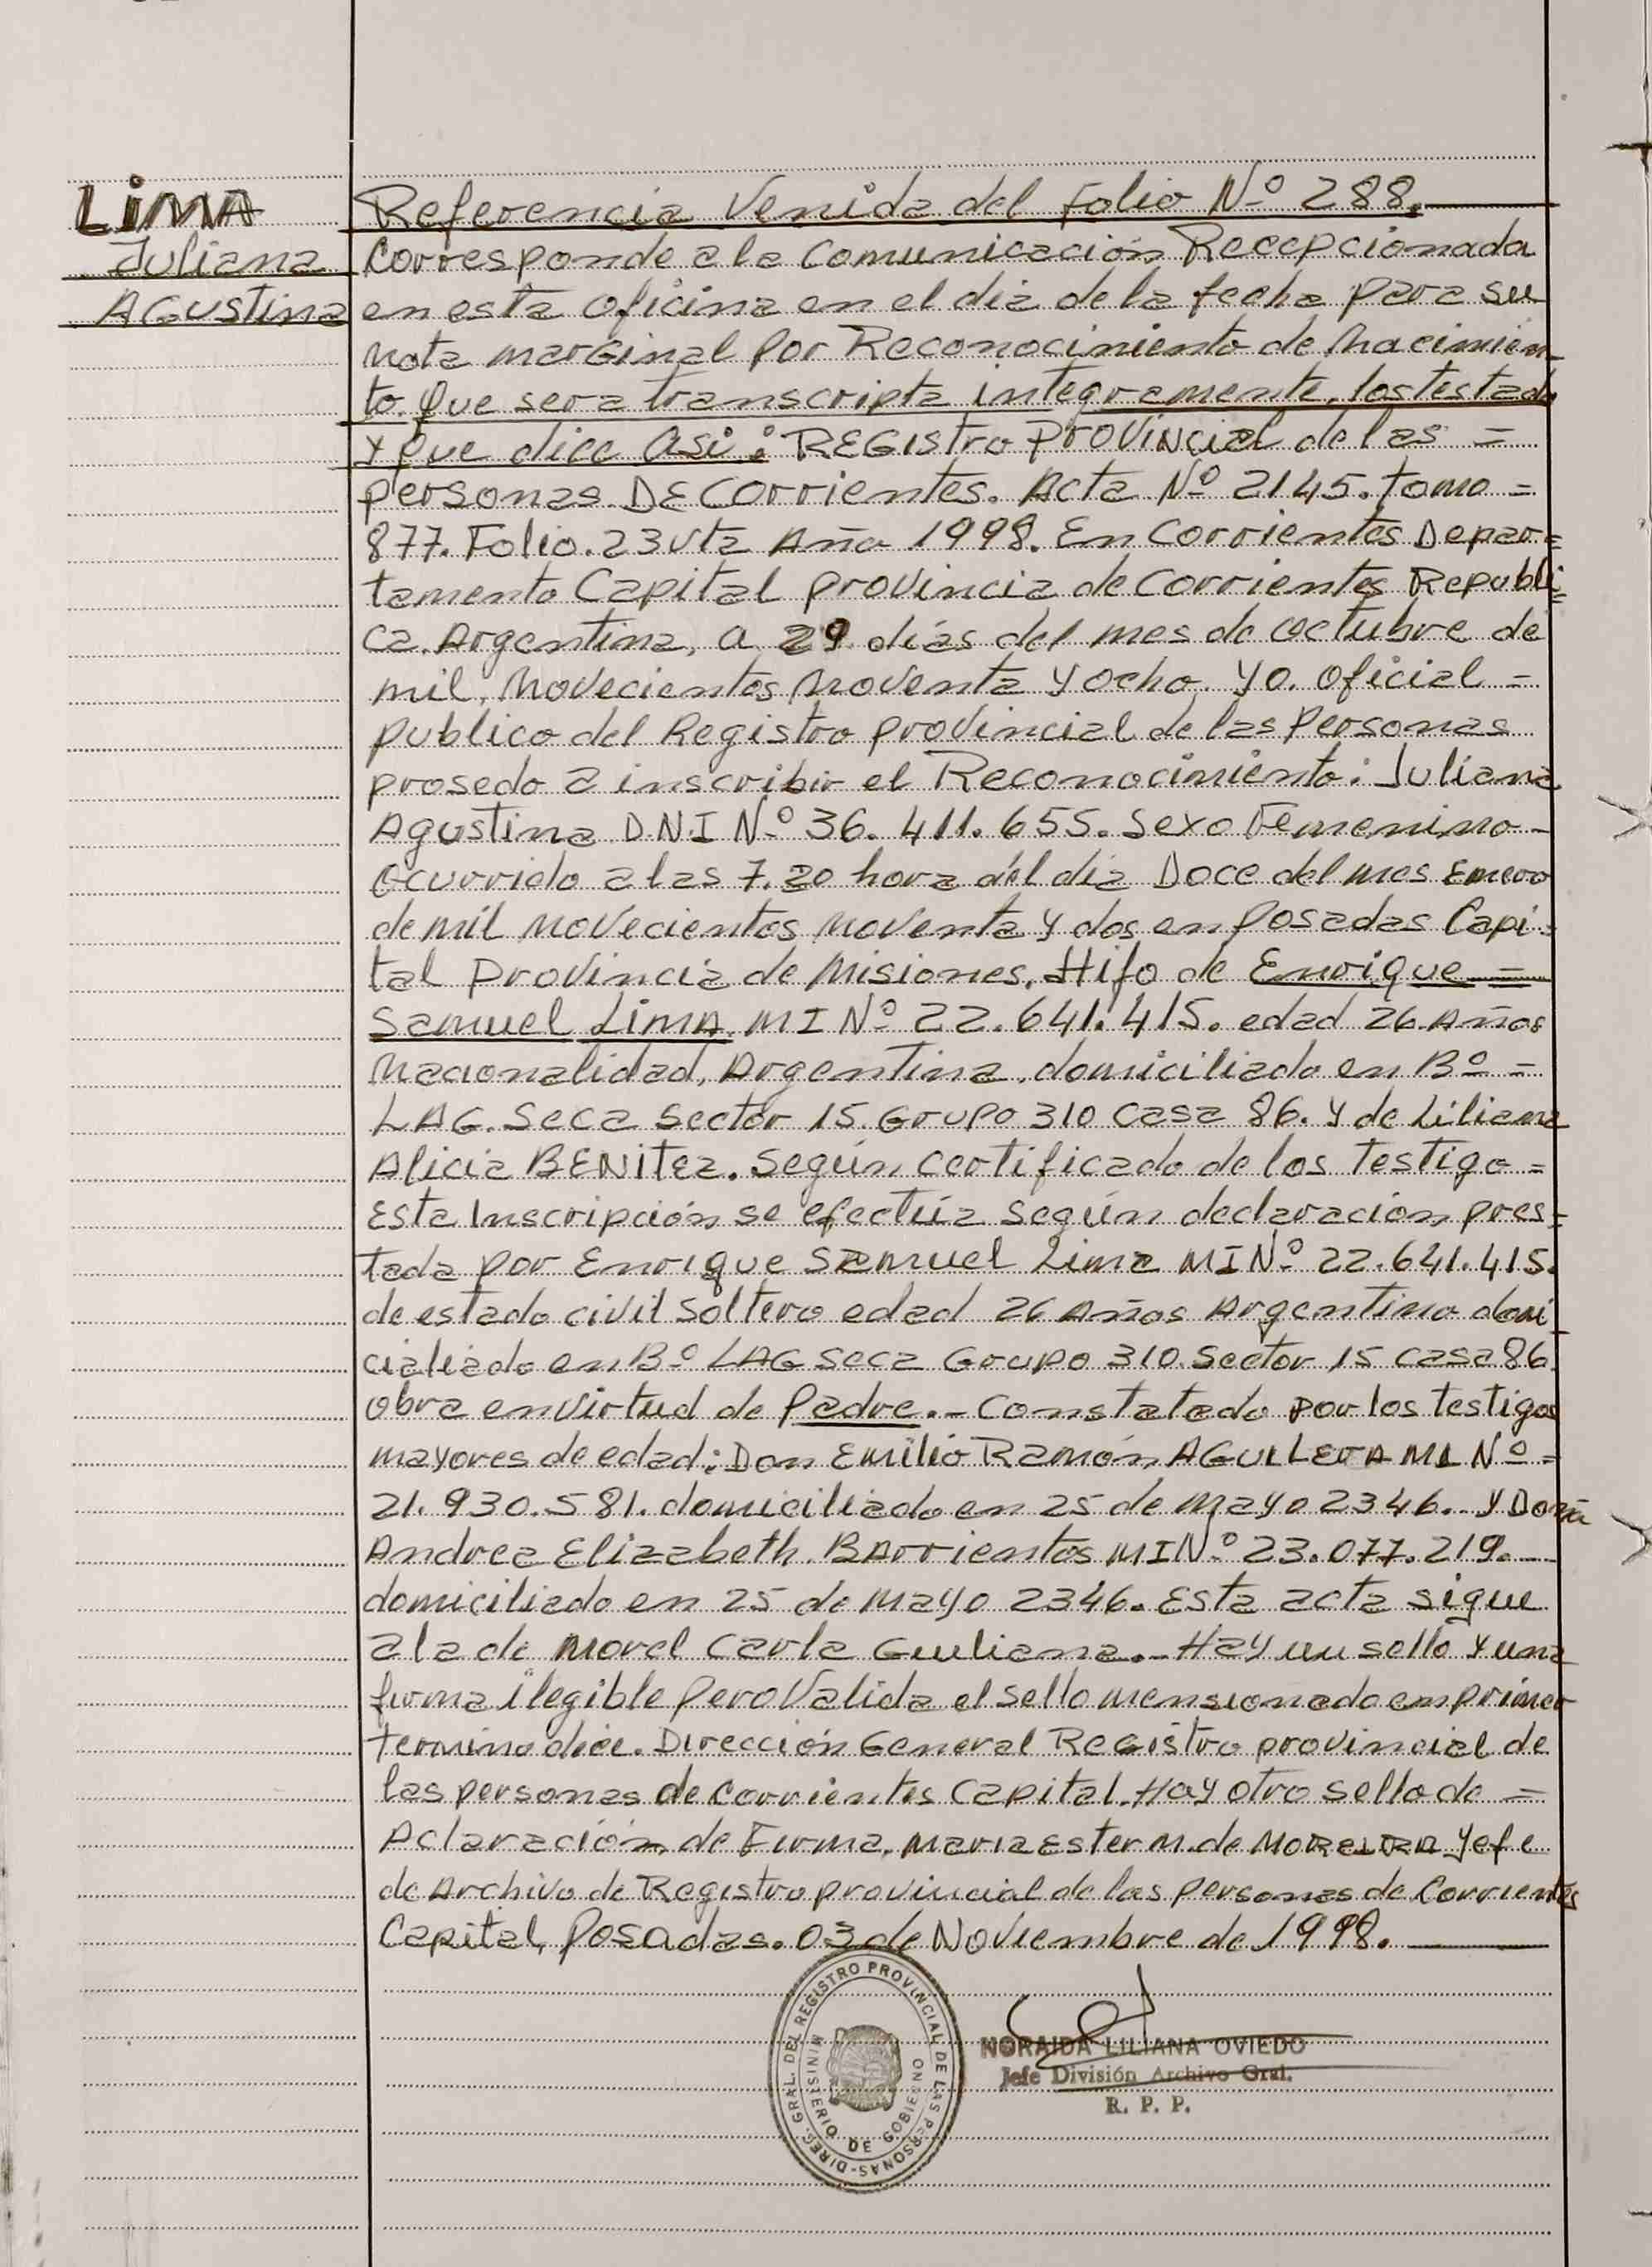 LIMA
Juliana
AGUstina
Referencia Venida del Folio Nº 288.
Corresponde a la Comunicación Recepcionada
en esta oficina en el dia de la fecha para su
nota marginal por Reconocimiento de nacimien-
to. que sera transcripta integramente, los testado
y que dice asi: REGistro PROVINcial de las =
personas DE Corrientes. Acta Nº 2145. tomo =
877. Folio. 23 vta Año 1998. En Corrientes Depar=
tamento Capital provincia de Corrientes Republi=
ca. Argentina, a 29 días del mes de octubre de
mil, novecientos noventa y ocho. yo. oficial =
publico del Registro provincial de las Personas
prosedo a inscribir el Reconocimiento: Juliana
Agustina D.N.I Nº 36. 411. 655. Sexo Femenino-
Ocurrido a las 7.20 hora del dia Doce del mes Enero
de mil novecientos noventa y dos en Posadas Capi-
tal Provincia de Misiones. Hijo de Enrique =
Samuel LIMA. MI Nº 22. 641. 415. edad 26 Años
nacionalidad, Argentina, domiciliado en Bº =
LAG. Seca Sector 15. Grupo 310 Casa 86. y de Liliana
Alicia BENITEZ. Según certificado de los Testigo =
Esta Inscripción se efectúa según declaración pres=
tada por Enrique Samuel Lima MI Nº 22. 641. 415.
de estado civil Soltero edad 26 Años Argentino domi
cialiado en Bº LAG Seca Grupo 310. Sector 15 Casa 86.
obra en virtud de Padre.- Constatado por los testigos
mayores de edad: Don Emilio Ramón AGUILERA MI Nº =
21. 930. 581. domiciliado en 25 de Mayo 2346. y Doña
Andrea Elizabeth. BArrientos MI Nº 23. 077. 219.
domiciliado en 25 de Mayo 2346. Esta acta sigue
a la de Morel Carla Giuliana.- Hay un sello y una
firma ilegible pero Valida el sello mensionado en primer
termino dice. Dirección General Registro provincial de
las personas de Corrientes Capital. Hay otro sello de =
Aclaración de Firma. Maria Ester M. de MOREIRA Jefe
de Archivo de Registro provincial de las personas de Corrientes
Capital, Posadas. 03 de Noviembre de 1998.
DIREC. GRAL. DEL REGISTRO PROVINCIAL DE LAS PERSONAS-
MINISTERIO DE GOBIERNO
NORAIDA LILIANA OVIEDO
Jefe División Archivo Gral.
R. P. P.